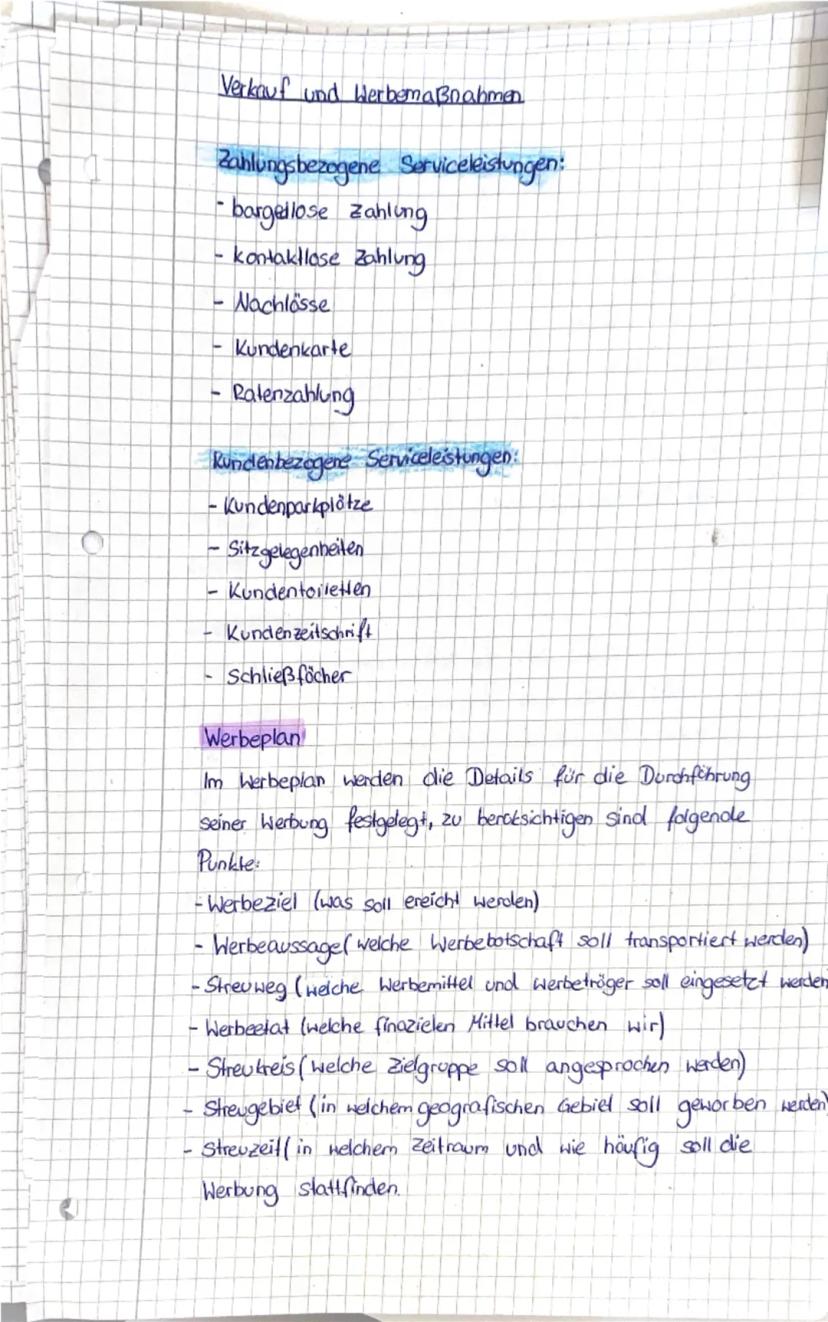 Verkauf und Werbemaßnahmen
Zahlungsbezogene Serviceleistungen:
- bargeldlose Zahlung
- kontaktlose Zahlung
- Nachlässe
- Kundenkarte
- Ratenzahlung
Kundenbezogene Serviceleistungen:
- Kundenparkplätze
- Sitzgelegenheiten
- Kundentoiletten
- Kundenzeitschrift
- Schließfächer
Werbeplan
Im Werbeplan werden die Details für die Durchführung
seiner Werbung festgelegt, zu berücksichtigen sind folgende
Punkte:
- Werbeziel (was soll ereicht werden)
- Werbeaussage (welche Werbebotschaft soll transportiert werden)
- Streuweg (welche Werbemittel und Werbeträger soll eingesetzt werden
- Werbeetat (welche finazielen Mittel brauchen wir)
- Streukreis (welche Zielgruppe soll angesprochen werden)
- Streugebiet (in welchem geografischen Gebiet soll geworben werden)
- Streuzeit (in welchem Zeitraum und wie häufig soll die
Werbung stattfinden.